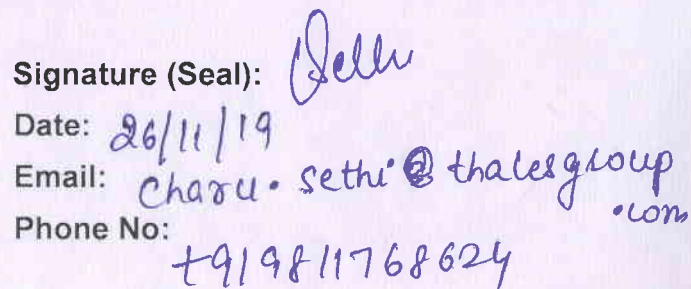 Signature (Seal):
Date: 26/11/19
Email: charu.sethi@thalesgroup
.com
Phone No:
+919811768624